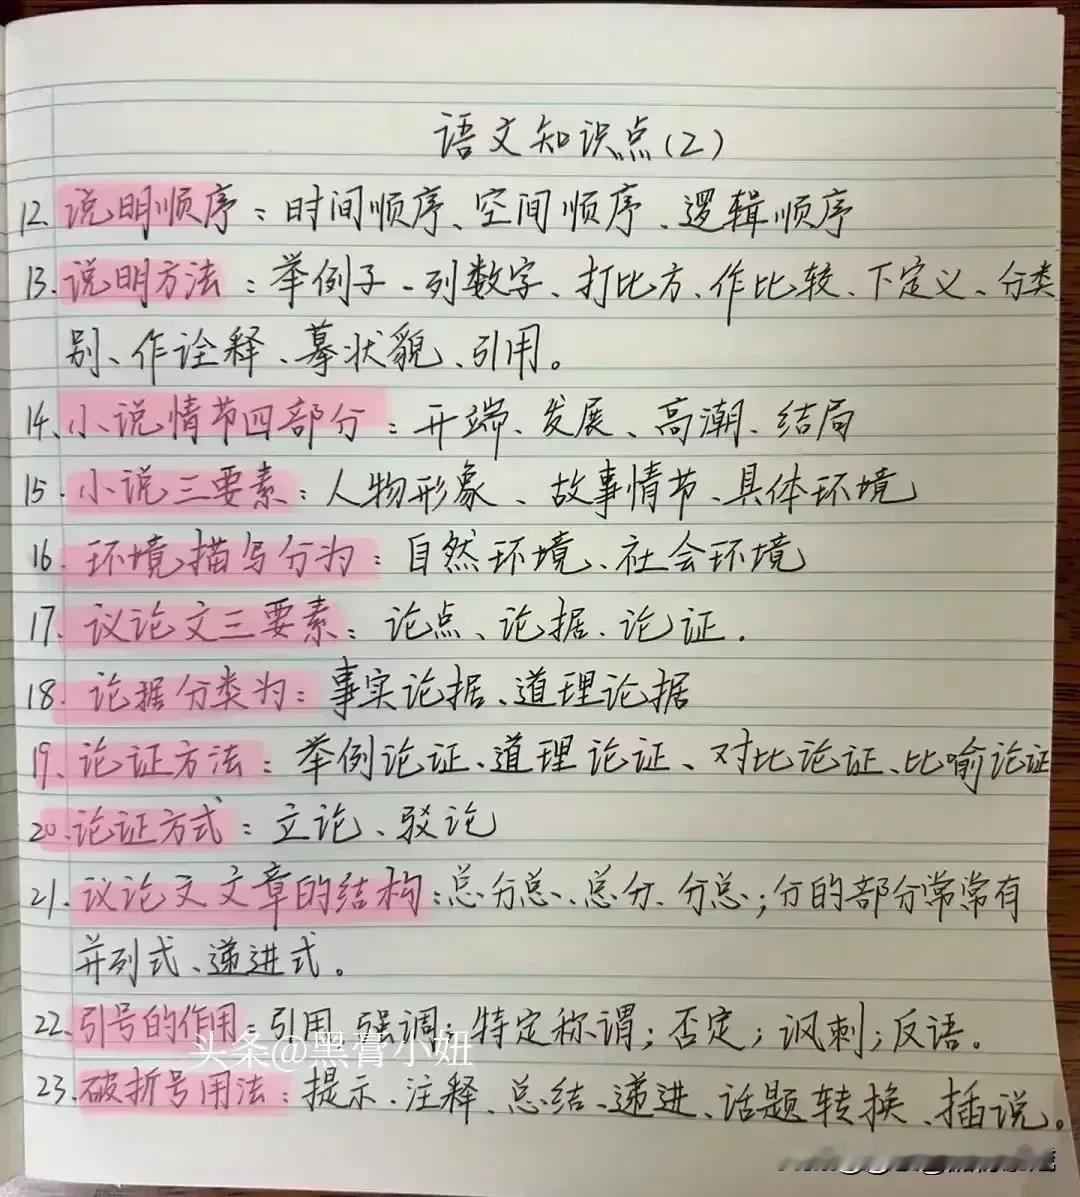 语文知识点(2)
12.说明顺序:时间顺序、空间顺序、逻辑顺序
13.说明方法:举例子、列数字、打比方、作比较、下定义、分类
别、作诠释、摹状貌、引用。
14、小说情节四部分:开端、发展、高潮、结局
15.小说三要素:人物形象、故事情节、具体环境
16.环境描写分为:自然环境、社会环境
17.议论文三要素:论点、论据、论证.
18.论据分类为:事实论据、道理论据
19、论证方法:举例论证、道理论证、对比论证、比喻论证
20.论证方式:立论、驳论
21.议论文文章的结构:总分总、总分、分总;分的部分常常有
并列式、递进式。
22、引号的作用:引用,强调;特定称谓;否定;讽刺;反语。
头条@黑膏小妞
23.破折号用法:提示、注释、总结、递进、话题转换、插说。